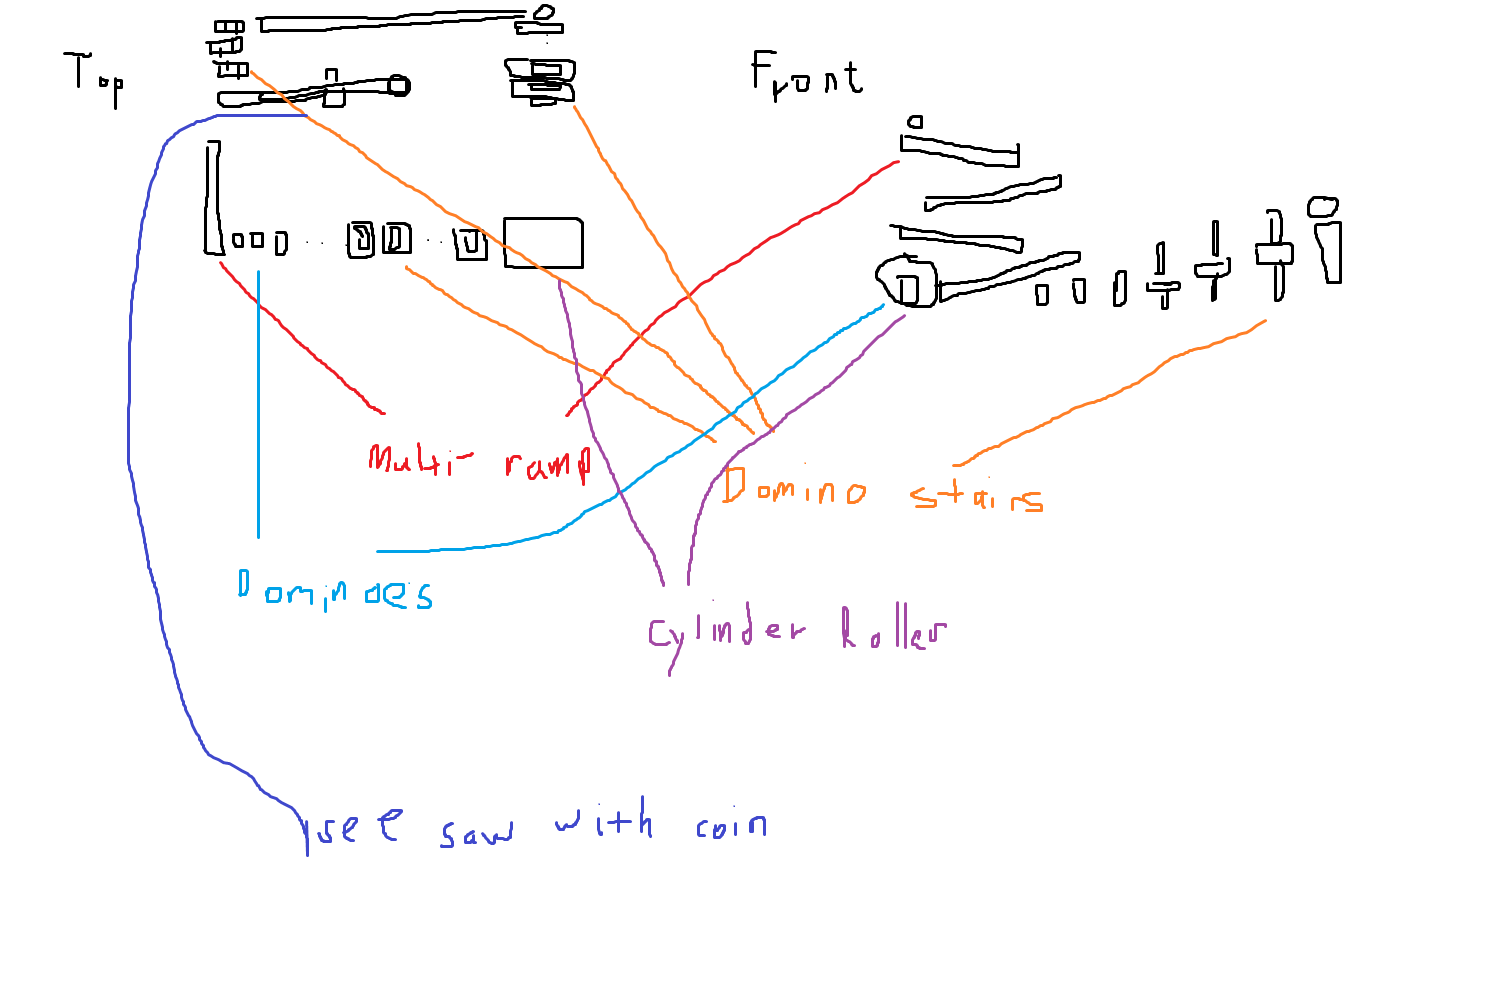 Top
Front
Multi-ramp
Domino stairs
Dominoes
Cylinder Roller
see saw with coin